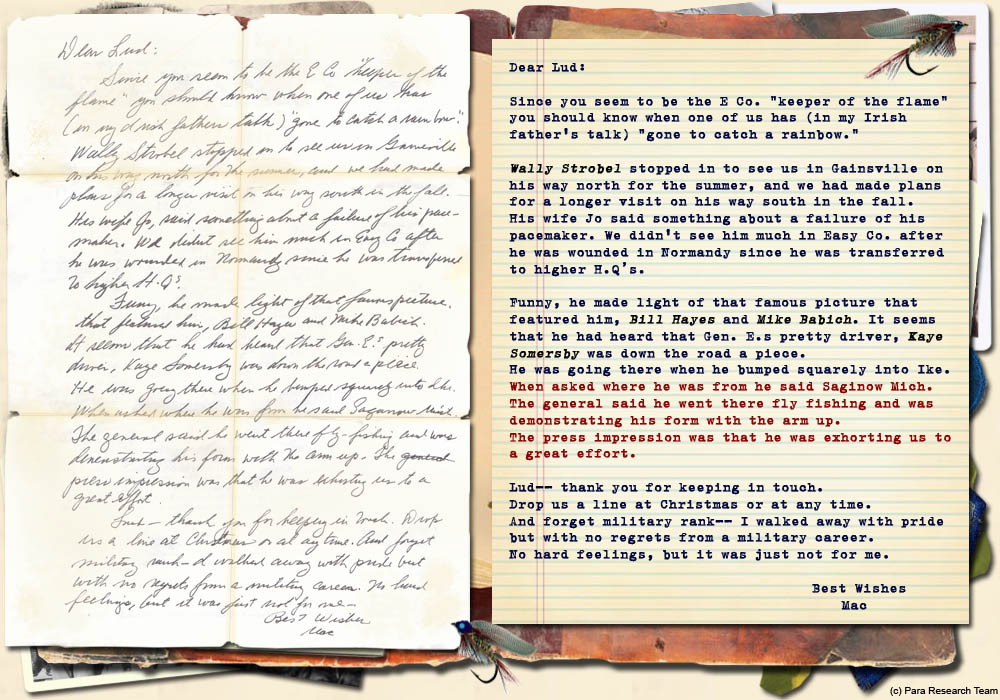 Dear Lud:
Since you seem to be the E Co "keeper of the
flame" you should know when one of us has
(in my Irish fathers talk) "gone to catch a rainbow".
Wally Strobel stopped in to see us in Gainsville
on his way north for the summer, and we had made
plans for a longer visit on his way south in the fall.
His wife Jo, said something about a failure of his pace-
maker. We didnt see him much in Easy Co after
he was wounded in Normandy since he was transferred
to higher H.Qs.
Funny, he made light of that famous picture.
that featured him, Bill Hayes and Mike Babich.
It seems that he had heard that Gen. E.s pretty
driver, Kaye Somersby was down the road a piece.
He was going there when he bumped squarely into Ike.
When asked where he was from he said Saganow Mich.
The general said he went there fly-fishing and was
demonstrating his form with the arm up. The general
press impression was that he was exhorting us to a
great effort.
Lud - thank you for keeping in touch. Drop
us a line at Christmas or at any time. And forget
military rank - I walked away with pride but
with no regrets from a military career. No hard
feelings, but it was just not for me -
Best Wishes
Mac
Dear Lud:
Since you seem to be the E Co. "keeper of the flame"
you should know when one of us has (in my Irish
father's talk) "gone to catch a rainbow."
Wally Strobel stopped in to see us in Gainsville on
his way north for the summer, and we had made plans
for a longer visit on his way south in the fall.
His wife Jo said something about a failure of his
pacemaker. We didn't see him much in Easy Co. after
he was wounded in Normandy since he was transferred
to higher H.Q's.
Funny, he made light of that famous picture that
featured him, Bill Hayes and Mike Babich. It seems
that he had heard that Gen. E.s pretty driver, Kaye
Somersby was down the road a piece.
He was going there when he bumped squarely into Ike.
When asked where he was from he said Saginow Mich.
The general said he went there fly fishing and was
demonstrating his form with the arm up.
The press impression was that he was exhorting us to
a great effort.
Lud-- thank you for keeping in touch.
Drop us a line at Christmas or at any time.
And forget military rank-- I walked away with pride
but with no regrets from a military career.
No hard feelings, but it was just not for me.
Best Wishes
Mac
(c) Para Research Team